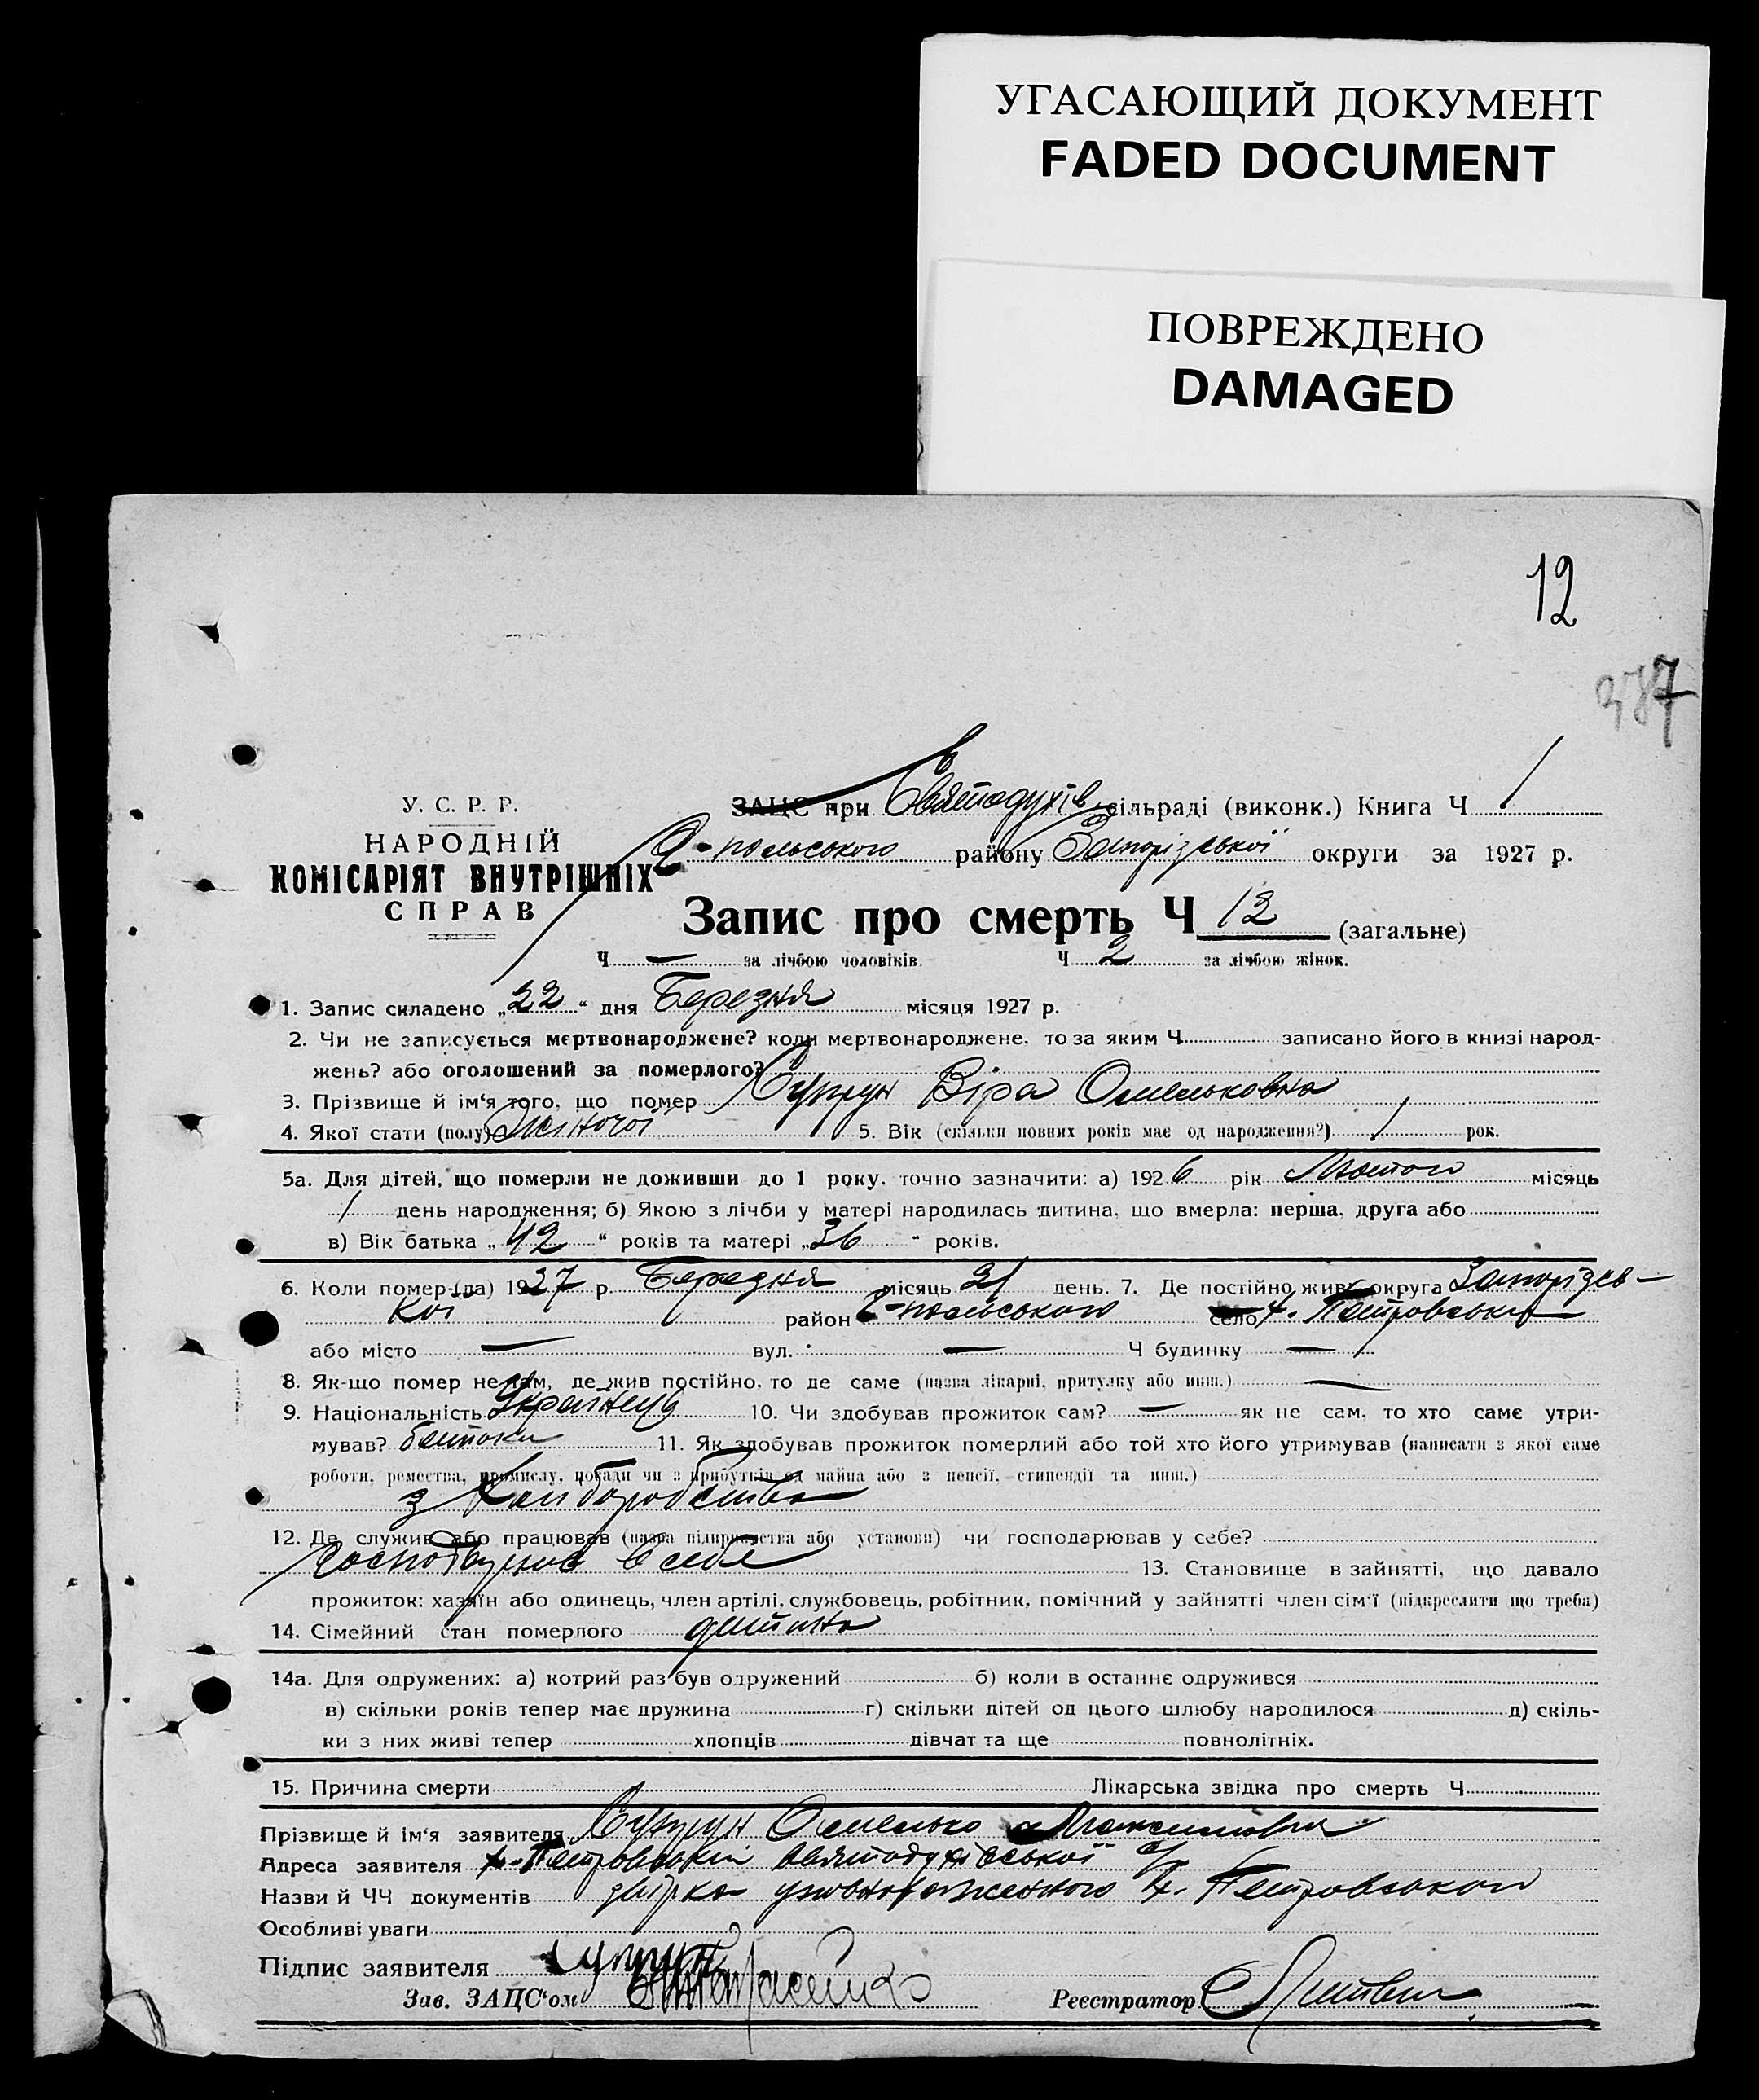 УГАСАЮЩИЙ ДОКУМЕНТ
FADED DOCUMENT
ПОВРЕЖДЕНО
DAMAGED
12
377
У. С. Р. Р.
НАРОДНІЙ
КОМІСАРІЯТ ВНУТРІШНІХ
СПРАВ
ЗАЦС при Святодухів. сільраді (виконк.) Книга Ч 1
-польського району Запорізської округи за 1927 р.
Запис про смерть Ч 12 (загальне)
Ч — за лічбою чоловіків. Ч 2 за лічбою жінок.
1. Запис складено „22“ дня Березня місяця 1927 р.
2. Чи не записується мертвонароджене? коли мертвонароджене, то за яким Ч записано його в книзі народ-
жень? або оголошений за померлого?
3. Прізвище й ім‘я того, що помер Супрун Віра Омельковна
4. Якої стати (полу) Жіночої 5. Вік (скільки повних років має од народження?) 1 рок.
5а. Для дітей, що померли не доживши до 1 року, точно зазначити: а) 1926 рік Лютого місяць
1 день народження; б) Якою з лічби у матері народилась дитина, що вмерла: перша, друга або
в) Вік батька „42“ років та матері „36“ років.
6. Коли помер-(ла) 1927 р. Березня місяць 21 день. 7. Де постійно жив: округа Запорізсь-
кої район -польського село х. Петровський
або місто — вул. — Ч будинку —
8. Як-що помер не там, де жив постійно, то де саме (назва лікарні, притулку або инш.) —
9. Національність Українець 10. Чи здобував прожиток сам? — як не сам, то хто саме утри-
мував? батьки 11. Як здобував прожиток померлий або той хто його утримував (написати з якої саме
роботи, ремества, промислу, посади чи з прибутків од майна або з пенсії, стипендії та инш.)
з хліборобства
12. Де служив або працював (назва підприємства або установи) чи господарював у себе?
в себе 13. Становище в зайнятті, що давало
прожиток: хазяїн або одинець, член артілі, службовець, робітник, помічний у зайнятті член сім‘ї (підкреслити що треба)
14. Сімейний стан померлого дитина
14а. Для одружених: а) котрий раз був одружений б) коли в останнє одружився
в) скільки років тепер має дружина г) скільки дітей од цього шлюбу народилося д) скіль-
ки з них живі тепер хлопців дівчат та ще повнолітніх.
15. Причина смерти Лікарська звідка про смерть Ч
Прізвище й ім‘я заявителя Супрун Омелько Максимович
Адреса заявителя х. Петровський Святодухівської с/р
Назви й ЧЧ документів уповноваженого х. Петровського
Особливі уваги
Підпис заявителя Супрун
Зав. ЗАЦС‘ом
Реєстратор